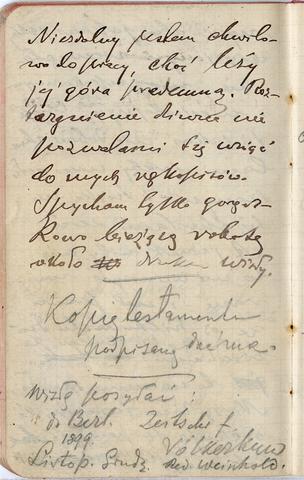 Niezdolny jestem chwilo-
wo do pracy, choć leży
jej góra przedemną. Roz-
targnienie dziwne nie
pozwala mi się wziąć
do mych rękopisów.
Spycham tylko gorącz-
kowo bieżącą robotę
około druku Wisły.
Kopię testamentu
podpisaną
posyłać:
do Berl. Zeitschr. f.
1899 Völkerkun
Listop. Grudz. red. Weinhold.